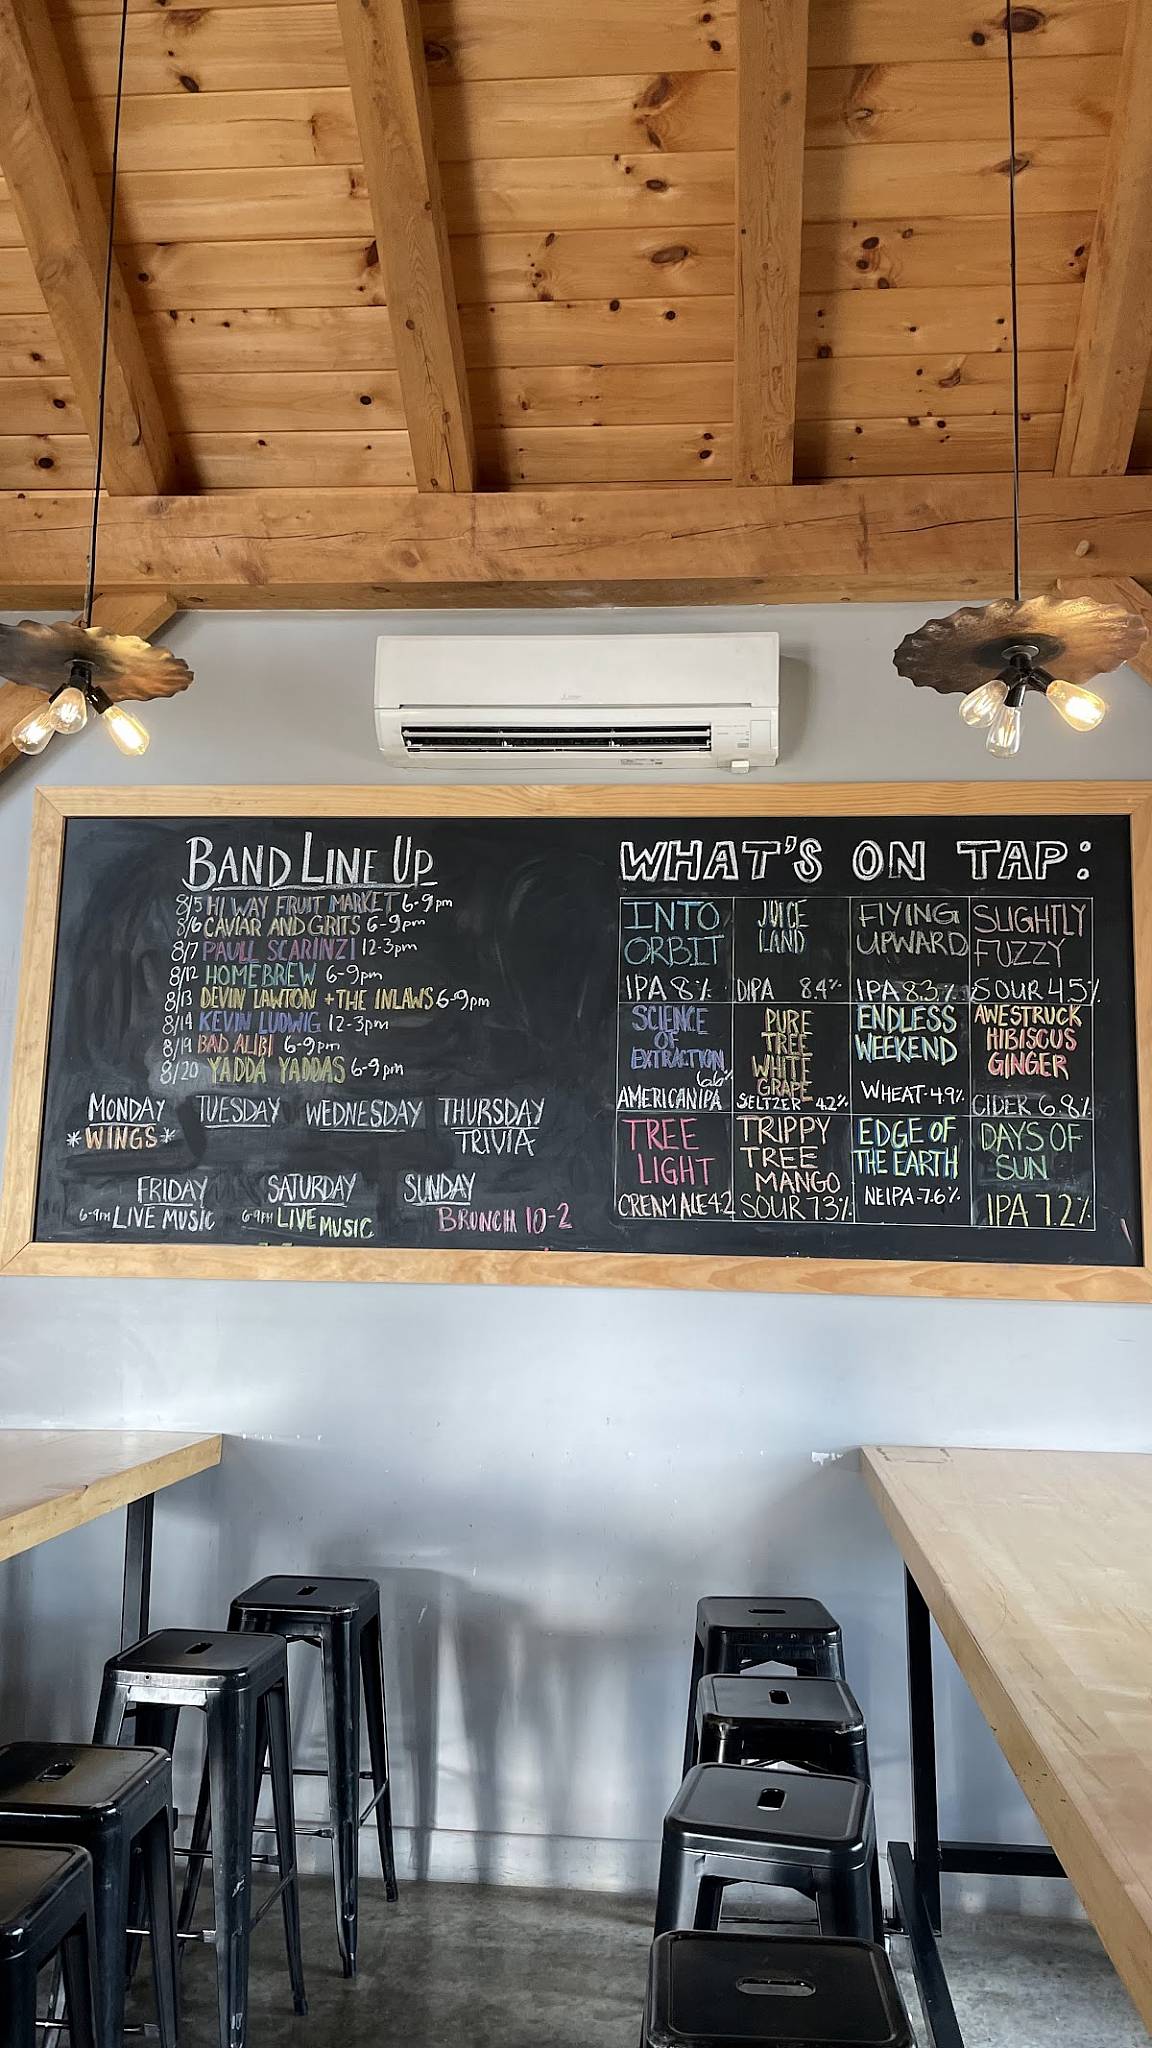 BAND LINE UP
8/5 HI WAY FRUIT MARKET 6-9pm
8/6 CAVIAR AND GRITS 6-9pm
8/7 PAULL SCARINZI 12-3pm
8/12 HOMEBREW 6-9pm
8/13 DEVIN LAWTON + THE INLAWS 6-9pm
8/14 KEVIN LUDWIG 12-3pm
8/19 BAD ALIBI 6-9pm
8/20 YADDA YADDAS 6-9pm
MONDAY
*WINGS*
TUESDAY
WEDNESDAY
THURSDAY
TRIVIA
FRIDAY
6-9PM LIVE MUSIC
SATURDAY
6-9PM LIVE MUSIC
SUNDAY
BRUNCH 10-2
WHAT'S ON TAP:
INTO
ORBIT
IPA 8%
JUICE
LAND
DIPA 8.4%
FLYING
UPWARD
IPA 8.3%
SLIGHTLY
FUZZY
SOUR 4.5%
SCIENCE
OF
EXTRACTION
6.6%
AMERICAN IPA
PURE
TREE
WHITE
GRAPE
SELTZER 4.2%
ENDLESS
WEEKEND
WHEAT-4.9%
AWESTRUCK
HIBISCUS
GINGER
CIDER 6.8%
TREE
LIGHT
CREAM ALE 4.2
TRIPPY
TREE
MANGO
SOUR 7.3%
EDGE OF
THE EARTH
NEIPA-7.6%
DAYS OF
SUN
IPA 7.2%